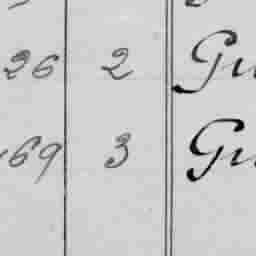 26 2 Gu
169 3 Gu